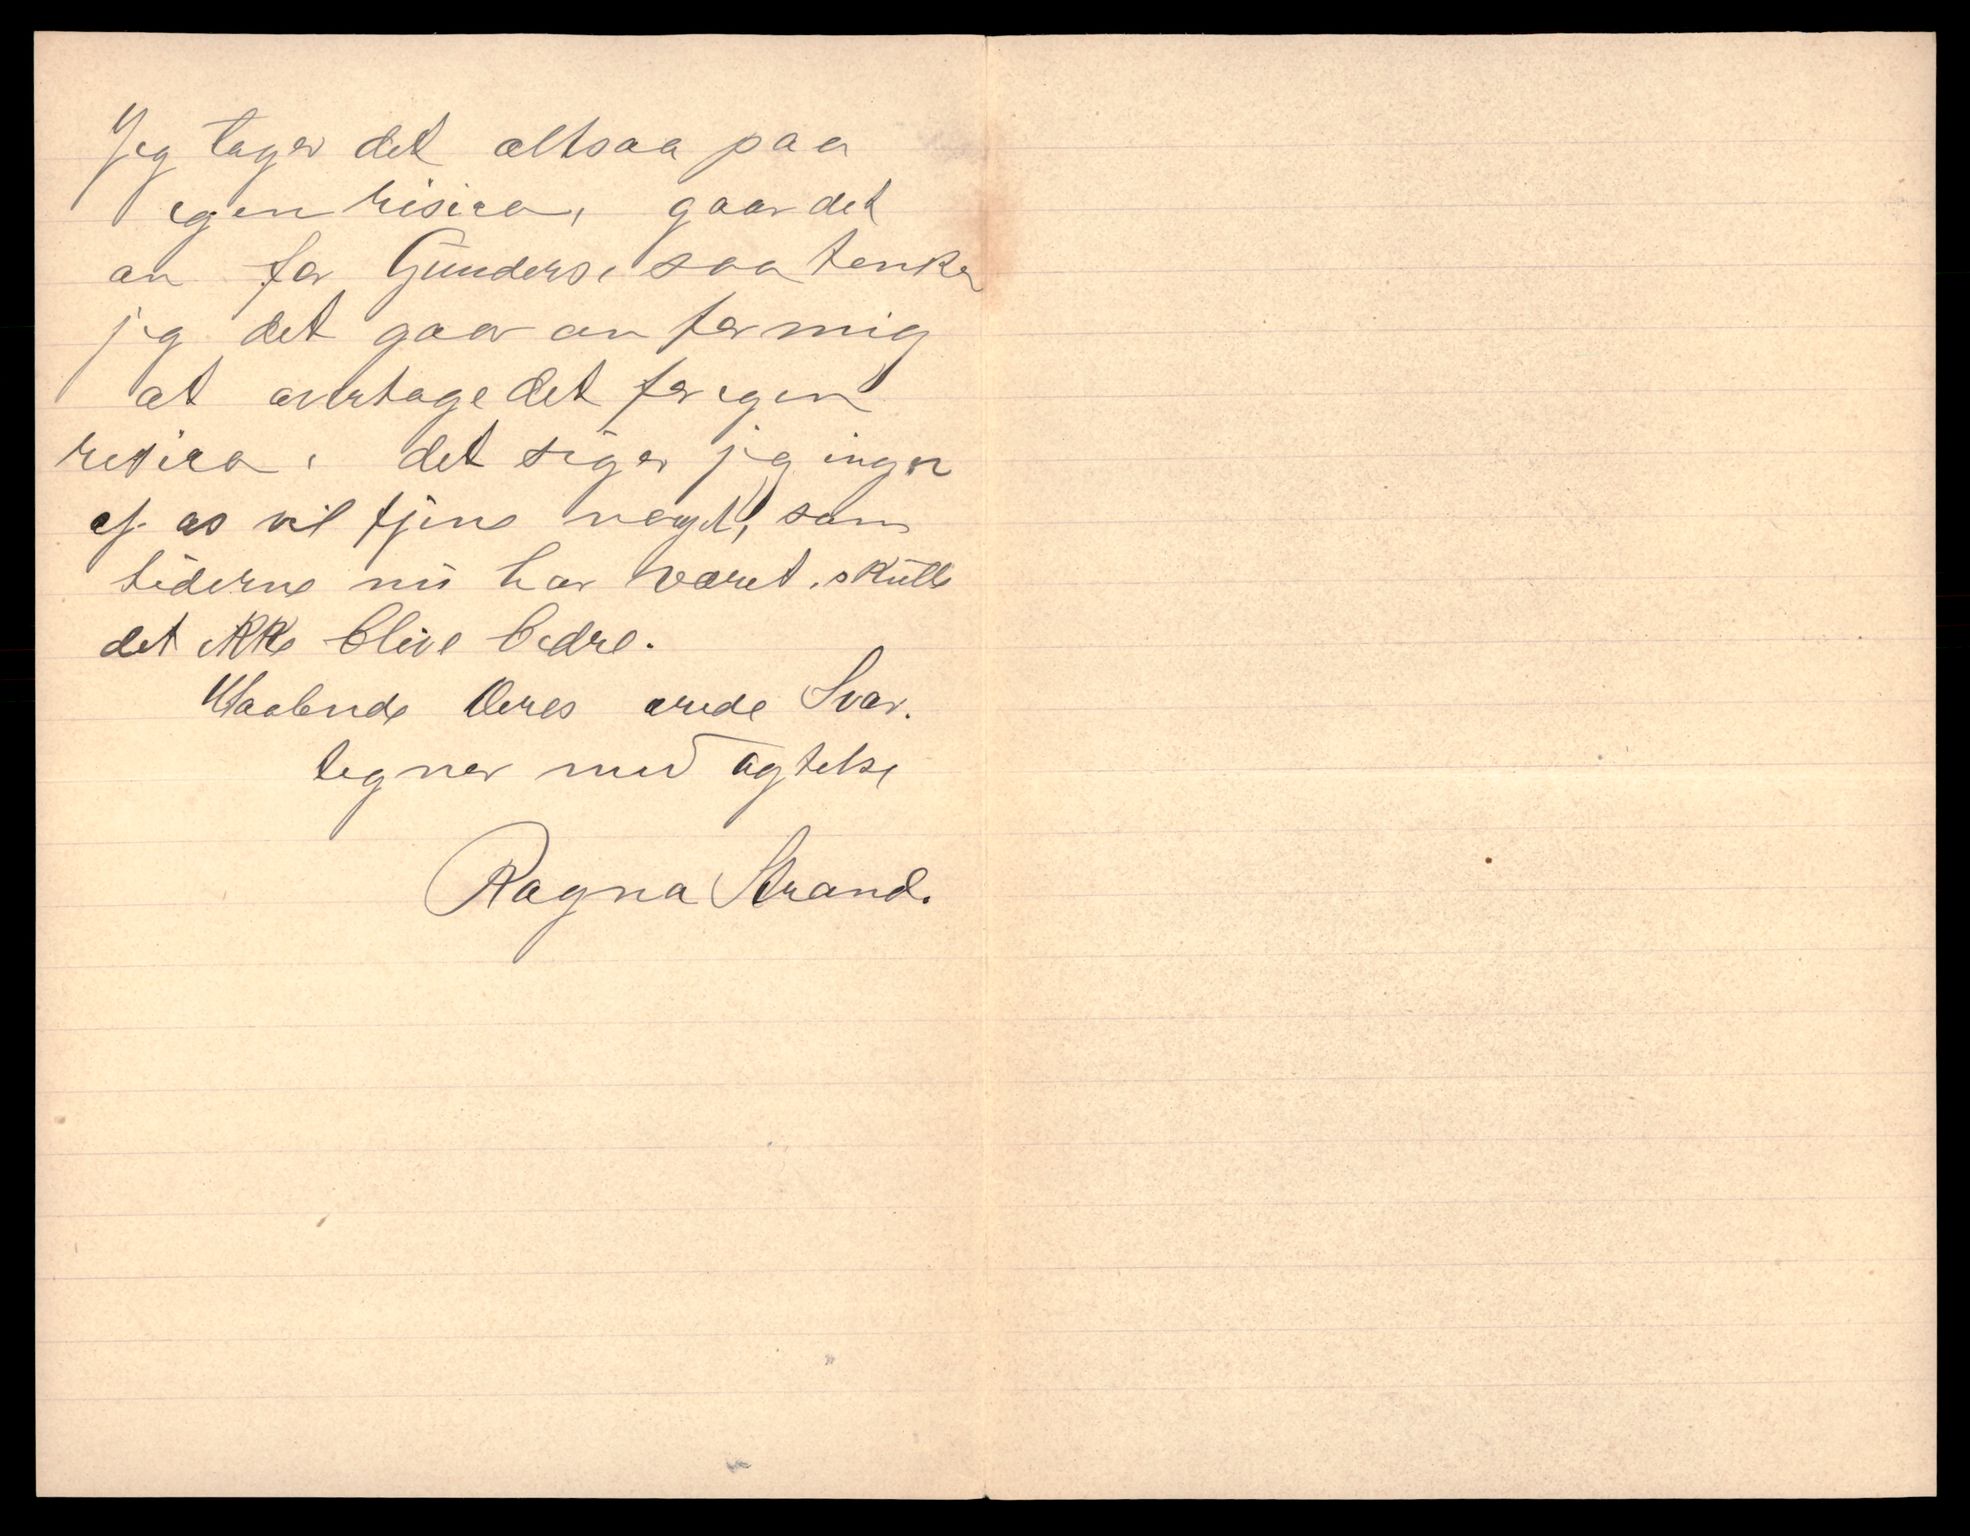 Jeg tager det altsaa paa
egen risico, gaar det
an for Gunders, saa tenker
jeg det gaar an for mig
at overtage det for egen
resico, det siger jeg ingen
af os vil tjene noget, som
tiderne nu har været, skulle
det ikke blive bedre.
Deres ærede Svar.
tegner med agtelse
Ragna Strand.